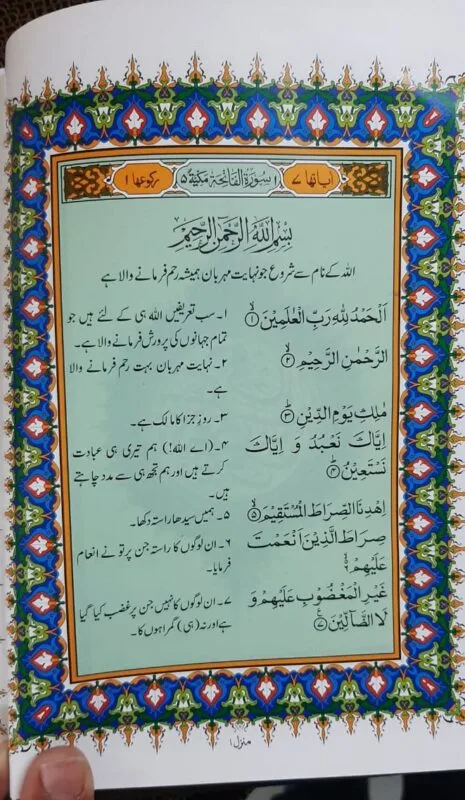 اٰیاتها ۷ ۱ سُوْرَةُ الْفَاتِحَةِ مَكِّيَّةٌ ۵ رکوعها ۱
بِسْمِ اللّٰهِ الرَّحْمٰنِ الرَّحِيْمِ
اللہ کے نام سے شروع جو نہایت مہربان ہمیشہ رحم فرمانے والا ہے
اَلْحَمْدُ لِلّٰهِ رَبِّ الْعٰلَمِيْنَ ۙ﴿۱﴾
۱۔ سب تعریفیں اللہ ہی کے لئے ہیں جو
تمام جہانوں کی پرورش فرمانے والا ہے۔
الرَّحْمٰنِ الرَّحِيْمِ ۙ﴿۲﴾
۲۔ نہایت مہربان بہت رحم فرمانے والا
ہے۔
مٰلِكِ يَوْمِ الدِّيْنِ ؕ﴿۳﴾
۳۔ روزِ جزا کا مالک ہے۔
اِيَّاكَ نَعْبُدُ وَ اِيَّاكَ
نَسْتَعِيْنُ ؕ﴿۴﴾
۴۔ (اے اللہ!) ہم تیری ہی عبادت
کرتے ہیں اور ہم تجھ ہی سے مدد چاہتے
ہیں۔
اِهْدِنَا الصِّرَاطَ الْمُسْتَقِيْمَ ۙ﴿۵﴾
۵۔ ہمیں سیدھا راستہ دکھا۔
صِرَاطَ الَّذِيْنَ اَنْعَمْتَ
عَلَيْهِمْ ۙ۬﴿۶﴾
۶۔ ان لوگوں کا راستہ جن پر تو نے انعام
فرمایا۔
غَيْرِ الْمَغْضُوْبِ عَلَيْهِمْ وَ
لَا الضَّآلِّيْنَ ﴿۷﴾
۷۔ ان لوگوں کا نہیں جن پر غضب کیا گیا
ہے اور نہ (ہی) گمراہوں کا۔
منزل ۱